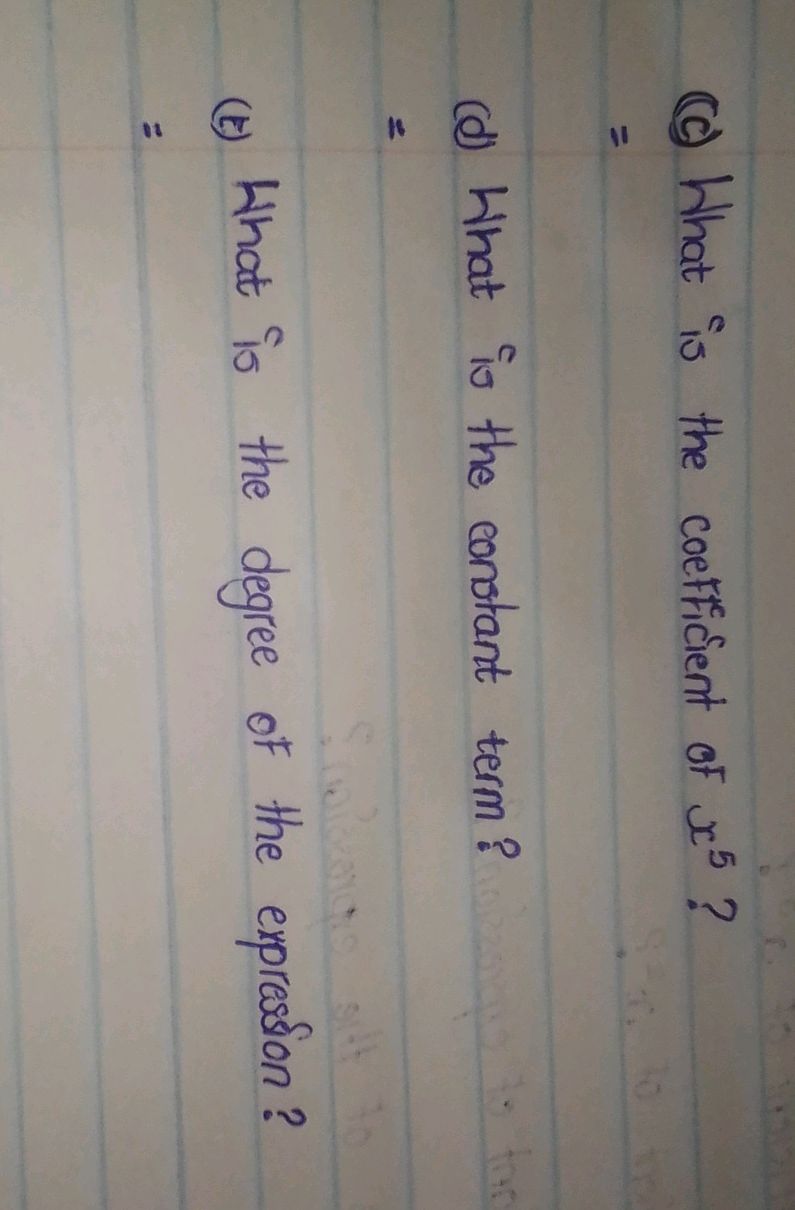 (c) What is the coefficient of x⁵ ?
=
(d) What is the constant term ?
=
(E) What is the degree of the expression ?
=